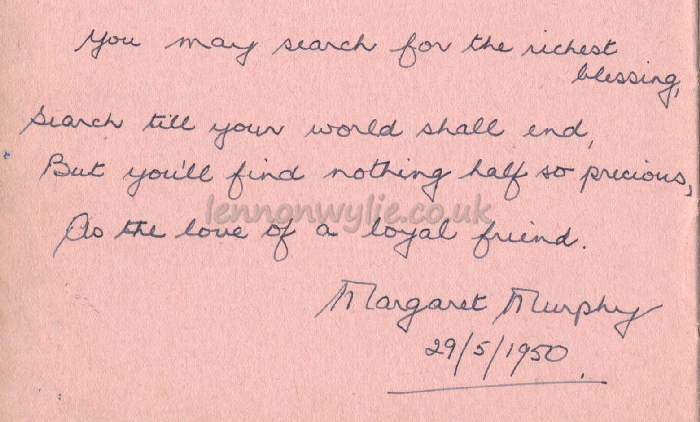 You may search for the richest
blessing,
Search till your world shall end,
But you'll find nothing half so precious,
lennonwylie.co.uk
As the love of a loyal friend.
Margaret Murphy
29/5/1950.